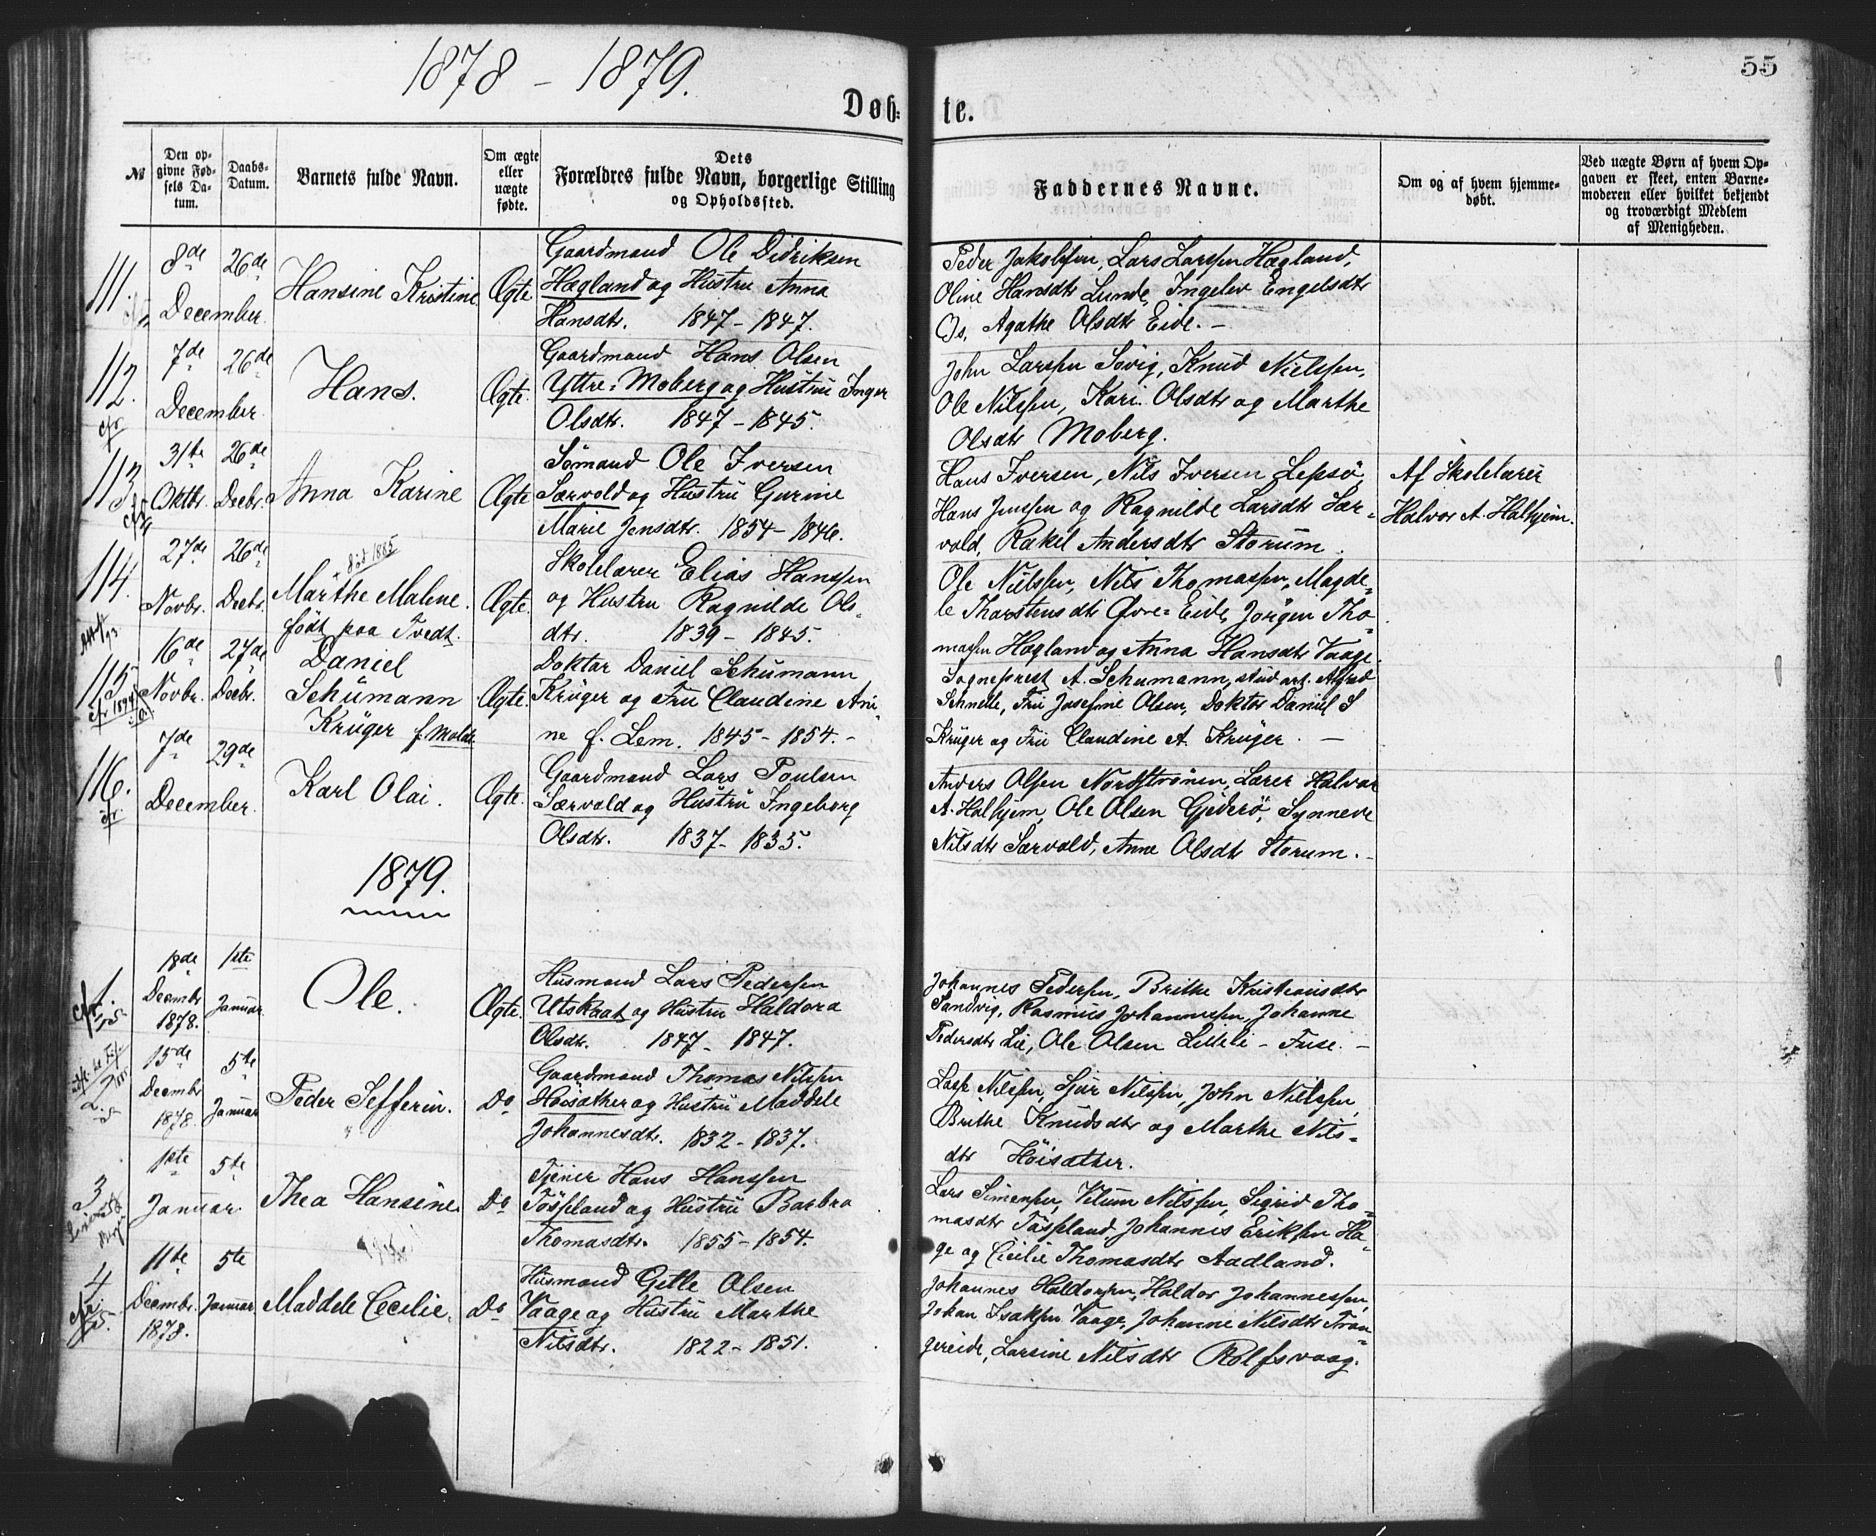 1878 - 1879.
55
Døb-
te.
№
Den op-
givne Fød-
sels Da-
tum.
Daabs-
Datum.
Barnets fulde Navn.
Om ægte
eller
uægte
fødte.
Dets
Forældres fulde Navn, borgerlige Stilling
og Opholdssted.
Faddernes Navne.
Om og af hvem hjemme-
døbt.
Ved uægte Børn af hvem Op-
gaven er skeet, enten Barne-
moderen eller hvilket bekjendt
og troværdigt Medlem
af Menigheden.
111.
8de
December
26de
Hansine Kristine
Ægte
Gaardmand Ole Didriksen
Hægland og Hustru Anna
Hansdtr. 1847-1847.
Peder Jakobsen, Lars Larssen Hægland,
Oline Hansdtr Lunde, Ingelev Engelsdtr
Os, Agathe Olsdtr Eide. -
112.
7de
December.
26de
Hans.
Ægte.
Gaardmand Hans Olsen
Yttre-Moberg og Hustru Inger
Olsdtr. 1847-1845.
John Larssen Søvig, Knud Nielssen,
Ole Nilssen, Kari Olsdtr og Marthe
Olsdtr Moberg.
113
31te
Oktbr.
26de
Decbr.
Anna Karine
Ægte
Sømand Ole Iversen
Særvold og Hustru Gurine
Marie Jensdtr. 1854-1846.
Hans Iversen, Nils Iversen Lepsø,
Hans Jenssen og Ragnilde Larsdtr Sær-
vold, Rakel Andersdtr Storum.
Af Skolelærer
Halvor A. Halhjem.
114.
27de
Novbr.
26de
Decbr.
død 1885
Marthe Malene.
født paa Tvedt.
Ægte.
Skolelærer Elias Hanssen
og Hustru Ragnilde Ols-
dtr. 1839-1845.
Ole Nielssen, Nils Thomassen, Magde-
le Thorstensdtr Øvre-Eide, Jörgen Tho-
massen Hægland og Anna Hansdtr Vaage.
115
16de
Novbr.
27de
Decbr.
Daniel
Schümann
Krüger f. Molde
Ægte.
Doktor Daniel Schümann
Krüger og Fru Claudine Ani-
ne f. Lem. 1845-1854.-
Sogneprest A. Schumann, stud. art. Alfred
Schnelle, Fru Josefine Olsen, Doktor Daniel S
Krüger og Fru Claudine A. Krüger. -
116.
7de
December.
29de
Karl Olai.
Ægte.
Gaardmand Lars Poulsen
Særvold og Hustru Ingeborg
Olsdtr. 1837-1835.
Anders Olsen Nordstrønen, Lærer Halvor
A. Halhjem, Ole Olsen Gjederö, Synneve
Nilsdtr Særvold, Anne Olsdtr Storum.-
1879.
1.
18de
Decembr
1878.
1ste
Januar
Ole.
Ægte.
Husmand Lars Pedersen
Utskaat og Hustru Haldora
Olsdtr. 1847-1847.
Johannes Pedersen, Brithe Kristiansdtr
Sandvig, Rasmus Johannesen, Johanne
Pedersdtr Lie, Ole Olsen Lilleli - Fuse. -
2.
15de
Decembr
1878.
5te
Januar
Peder Sefferin.
Do
Gaardmand Thomas Nilssen
Høisæther og Hustru Maddele
Johannesdtr. 1832-1837.
Lasse Nilssen, Sjur Nilssen, John Nielssen,
Brithe Knudsdtr og Marthe Nils-
dtr Høisæther.
3
1ste
Januar.
5te
Thea Hansine.
Do
Tjener Hans Hanssen
Tøssland og Hustru Barbra
Thomasdtr. 1855-1854.
Lars Simensen, Villum Nilssen, Sigrid Tho-
masdtr Tøssland, Johannes Eriksen Ha-
ge og Cecilie Thomasdtr Aadland.
4
11te
Decembr.
1878.
5te
Januar.
Maddele Cecilie.
Do
Husmand Gitle Olsen
Vaage og Hustru Marthe
Nilsdtr. 1822-1851.
Johannes Haldorsen, Haldor Johannessen,
Johan Isaksen Vaage, Johanne Nilsdtr Tran-
gereide, Larsine Nilsdtr Rolfsvaag.